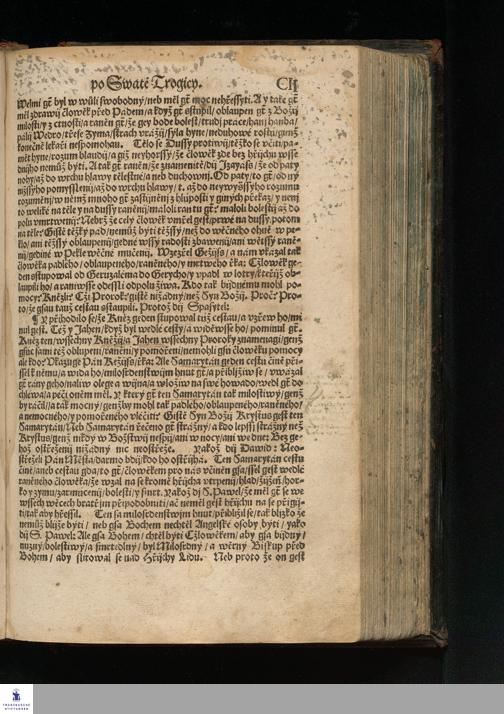 po Swaté Trogicy. CIj
Welmi gt̃ byl w wůli swobodný/neb měl gt̃ moc nehřessyti. A y take gt̃
měl zdrawij člowěk před Pádem/a když gt̃ ostupil/oblaupen gt̃ z Božij
milosti/y z ctnosti/a raněn gt̃/že gey bode bolest/trudj práce/hanj hanba/
pálij Wedro/třese Zyma/strach wražij/syla hyne/neduhowé rostu/genž
konečně lekači nespomohau. Tělo se Dussy protiwij/těžko se včiti/pa-
mět hyne/rozum blaudij/a giž neyhorssy/že člowěk zde bez hřijchu wsse-
dnijho nemůž býti. A tak gt̃ raněn/že znamenitě dij Izayáss/že od paty
nohy/až do wrchu hlawy
rozumění/w němž mnoho gt̃ zastijnění z hluposti y giných překaz/y není
to weliké na těle y na dussy raněnij/
na těle: Gistě těžký pád/nemůž býti těžssý/než do wěčného ohně w pe-
klo/ani těžssý oblaupenij/gedné wssý radosti zbawenij/ani wětssý raně-
nij/gediné w Pekle wěčné mučenij. Wezřel Gežijss/a nám vkázal tak
člowěka padlého/oblaupeného/raněného/y mrtwého řka: Člowěk ge-
den stupowal od Geruzaléma do Gerycho/y vpadl w lotry/kteřijž ob-
laupili ho/a raniwsse odessli odpolu žiwa. Kdo tak bijdnému mohl po-
mocy: Kněžli: Čži Prorok: gistě nižádný/než Syn Božij. Proč: Pro-
to/že gsau tauž cestau ostaupili. Protož dij Spasytel:
Y přihodilo se/že Kněz geden stupowal tuž cestau/a vzřew ho/mi-
nul gest. Též y Jáhen/když byl wedlé cesty/a widěwsse ho/pominul gt̃.
Kněz ten/wssechny Kněžij/a Jáhen wssechny Proroky znamenagi/genž
gsuc sami též oblupeni/raněni/y pomořeni/nemohli gsu člowěku pomocy
ale kdo: Vkazuge Pán Kěžijss/řka: Ale Samarytán geden cestu čině při-
ssel k němu/a wida ho/milosrdenstwijm hnut gt̃/a přibližiw se/vwázal
gt̃ rány geho/naliw olege a wijna/a wložiw na swé howado/wedl gt̃ do
chléwa/a péči o něm měl. Y který gt̃ ten Samarytán tak milostiwý/genž
by ráčil/a tak mocný/genžby mohl tak padlého/oblaupeného/raněného/
a nemocného/y pomořeného vléčiti: Gistě Syn Božij Krystus gest ten
Samarytán/Neb Samarytán řečeno gt̃ strážný/a kdo lepssý strážný než
Krystus/genž nikdy w Božstwij nespij/ani w nocy/ani we dne: Bez ge-
hož ostřeženij nižádný nic neostřeže. Yakož dij Dawid: Neo-
střeželi Pán Města/darmo bdij/kdo ho ostřijhá. Ten Samarytán cestu
čině/aneb cestau gda/to gt̃/člowěkem pro nás včiněn gsa/ssel gest wedlé
raněného člowěka/že wzal na se kromě hřijcha vtrpenij/hlad/žijzeň/hor-
ko y zymu/zarmucenij/bolesti/y smrt. Yakož dij S. Pawel: že měl gt̃ se we
wssech wěcech bratřijm připodobniti/ač neměl gest hřijchu na se přigij-
ti/tak aby hřessil. Ten sa milosrdenstwijm hnut/přibližil se/tak blízko že
nemůž bliže býti/neb gsa Bohem nechtěl Angelské osoby býti/yako
dij S. Pawel: Ale gsa Bohem/chtěl býti Člowěkem/aby gsa bijdný/
nuzný/bolestiwý/a smrtedlný/byl Milosrdný/a wěrný Biskup před
Bohem/aby slitowal se nad Hřijchy Lidu. Neb proto že on gest